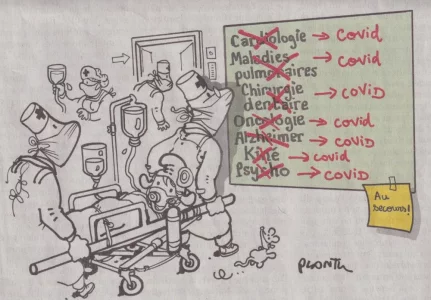 Cardiologie → covid
Maladies → covid
pulmonaires
Chirurgie → coViD
dentaire
Oncologie → covid
Alzheimer → coviD
Kiné → covid
Psycho → coviD
Au
secours!
PLANTU